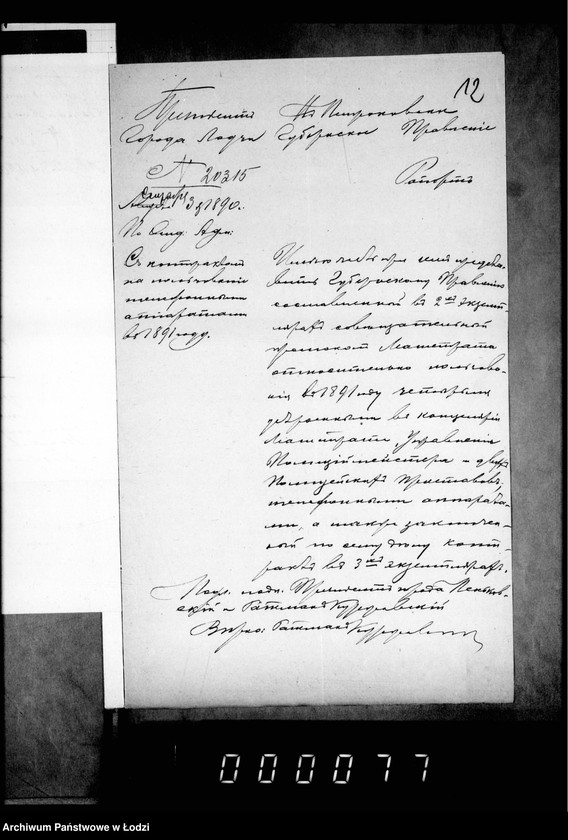 12
Президентъ
Города Лодзи
Въ Петроковское
Губернское Правленіе
№ 20315
3 1890.
Рапортъ
Съ контрактомъ
на пользованіе
телефонными
аппаратами
въ 1891 году.
Имѣю честь при семъ представить
Губернскому Правленію
составленный въ 2хъ экземп-
лярахъ совѣщательный
протоколъ Магистрата
относительно пользова-
нія въ 1891 году четырьмя
устроенными въ канцеляріи
Магистрата, Управленіи
Полиціймейстера и двухъ
Полицейскихъ Приставовъ,
телефонными аппарата-
ми, а также заключен-
ный по сему дѣлу конт-
рактъ въ 3хъ экземплярахъ.
Подл. подп. Президентъ города Пеньков-
скій и Ратманъ
Вѣрно: Ратманъ
000077
Archiwum Państwowe w Łodzi